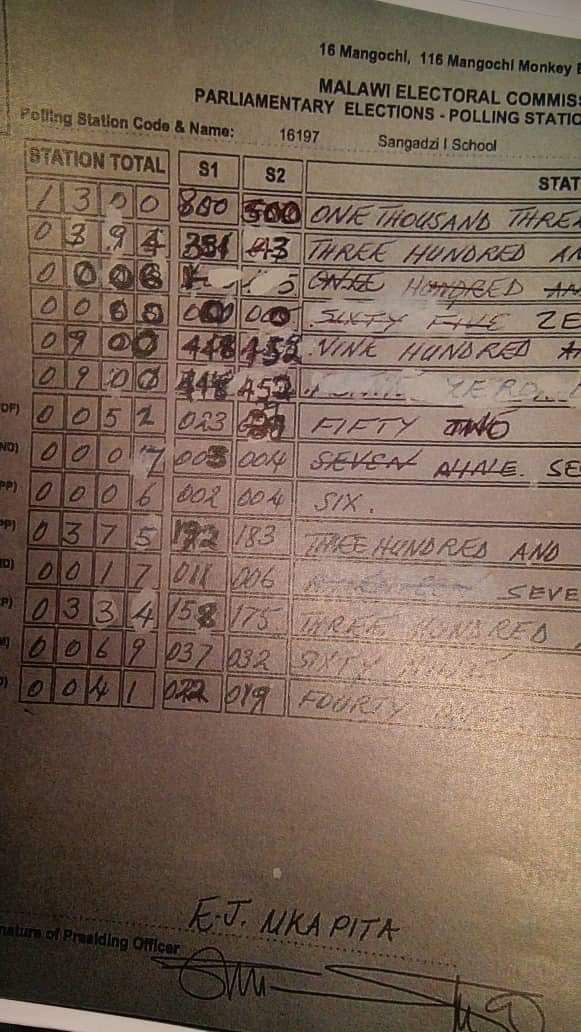 16 Mangochi, 116 Mangochi Monkey
MALAWI ELECTORAL COMMISS
PARLIAMENTARY ELECTIONS - POLLING STATIO
Polling Station Code & Name: 16197 Sangadzi I School
STATION TOTAL S1 S2 STAT
1 3 0 0 800 500 ONE THOUSAND THREE
0 3 9 4 351 43 THREE HUNDRED AN
0 0 0 6 HUNDRED AN
0 0 0 0 000 000 SIXTY FIVE ZE
0 9 0 0 448 452 NINE HUNDRED
0 9 0 0 448 452 ZERO
DF) 0 0 5 2 023 FIFTY TWO
ND) 0 0 0 7 003 004 SEVEN SE
PP) 0 0 0 6 002 004 SIX.
PP) 0 3 7 5 192 183 THREE HUNDRED AND
D) 0 0 1 7 011 006 SEVE
P) 0 3 3 4 158 175 THREE HUNDRED
) 0 0 6 9 037 032 SIXTY NINE
) 0 0 4 1 022 019 FOURTY
E.J. MKAPITA
nature of Presiding Officer